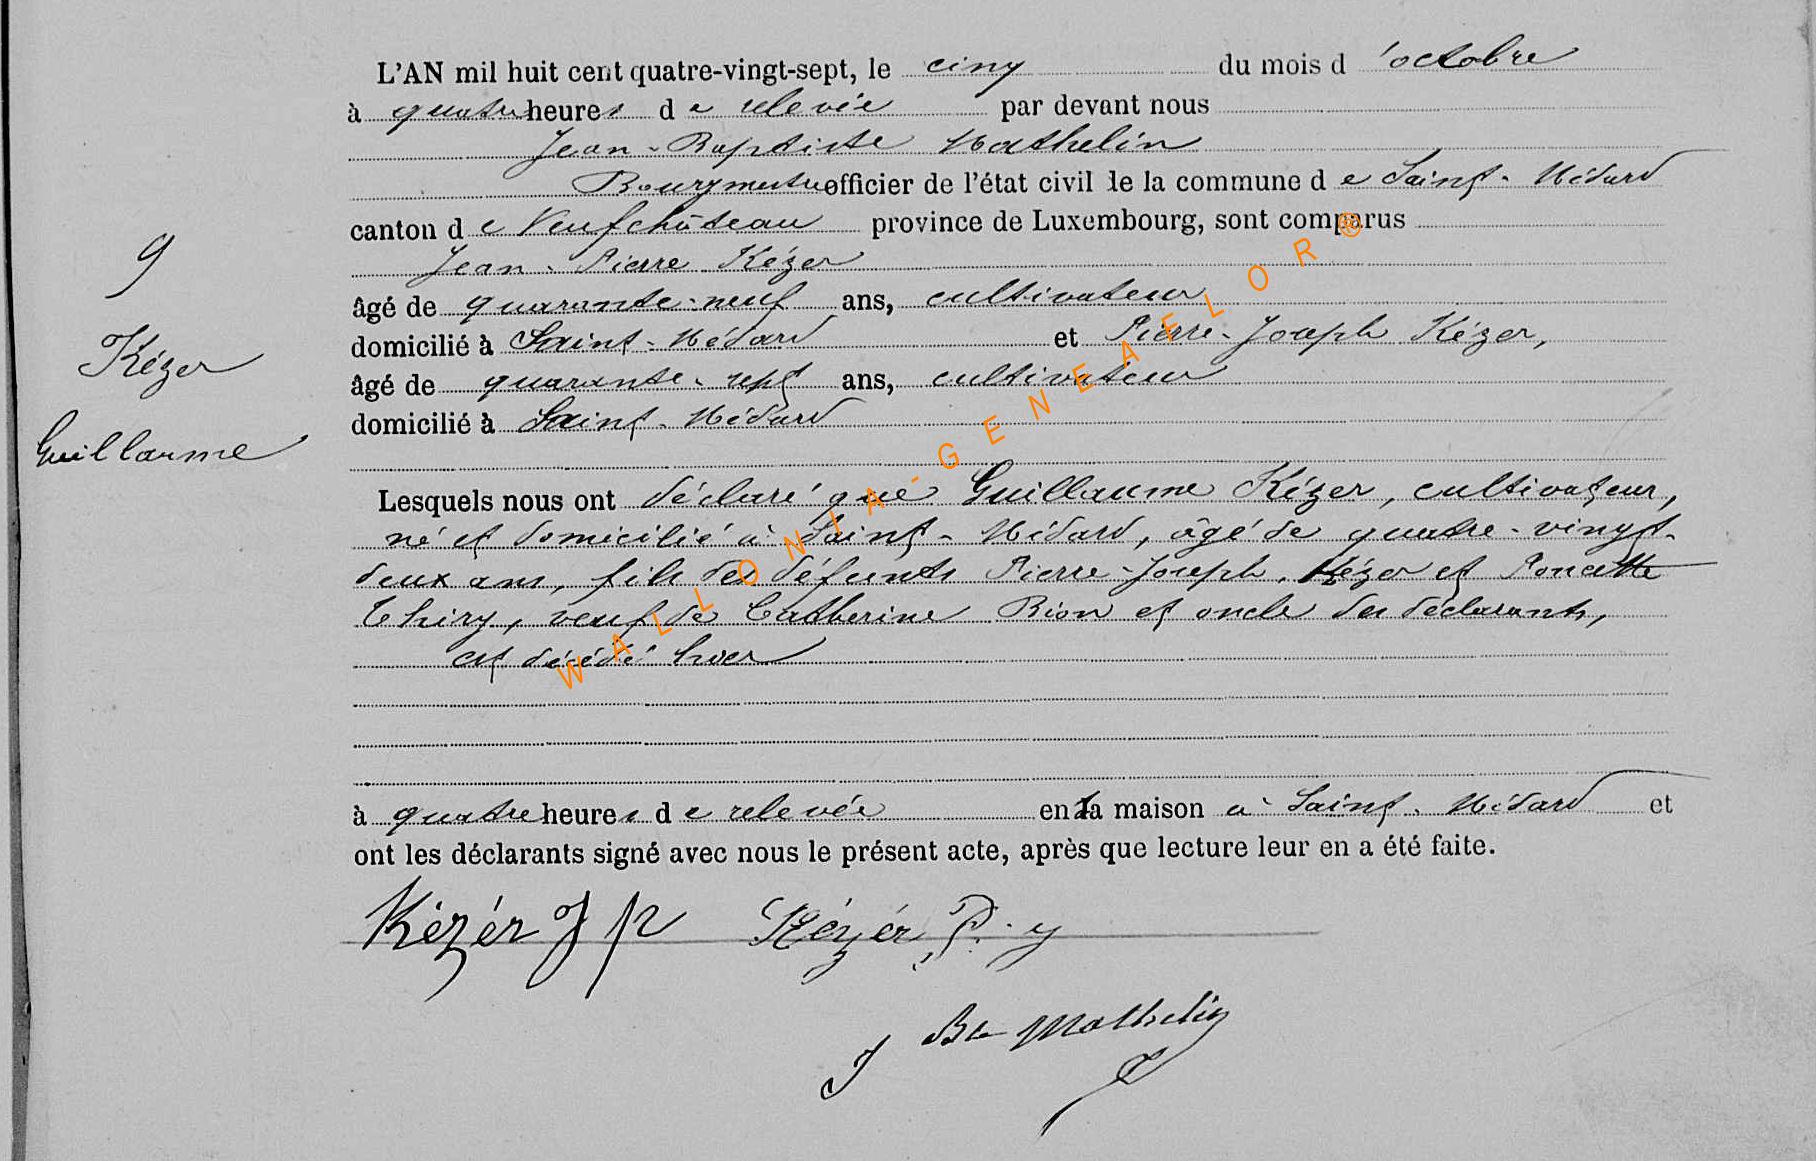 L'AN mil huit cent quatre-vingt-sept, le cinq du mois d'octobre
à quatre heures de relevée par devant nous
Jean-Baptiste Mathelin
Bourgmestre officier de l'état civil de la commune de Saint-Médard
canton de Neufchâteau province de Luxembourg, sont comparus
9
Jean-Pierre Kézer
âgé de quarante-neuf ans, cultivateur
domicilié à Saint-Médard et Pierre-Joseph Kézer,
Kézer
âgé de quarante-sept ans, cultivateur
domicilié à Saint-Médard
Guillaume
Lesquels nous ont déclaré que Guillaume Kézer, cultivateur,
né et domicilié à Saint-Médard, âgé de quatre-vingt-
deux ans, fils des défunts Pierre-Joseph Kézer et Poncette
Thiry, veuf de Catherine Bion et oncle des déclarants,
est décédé hier
à quatre heures de relevée en la maison à Saint-Médard et
ont les déclarants signé avec nous le présent acte, après que lecture leur en a été faite.
Kézér J p Kézér P. j
J Bte Mathelin
WALLONIA-GENEAFLOR®